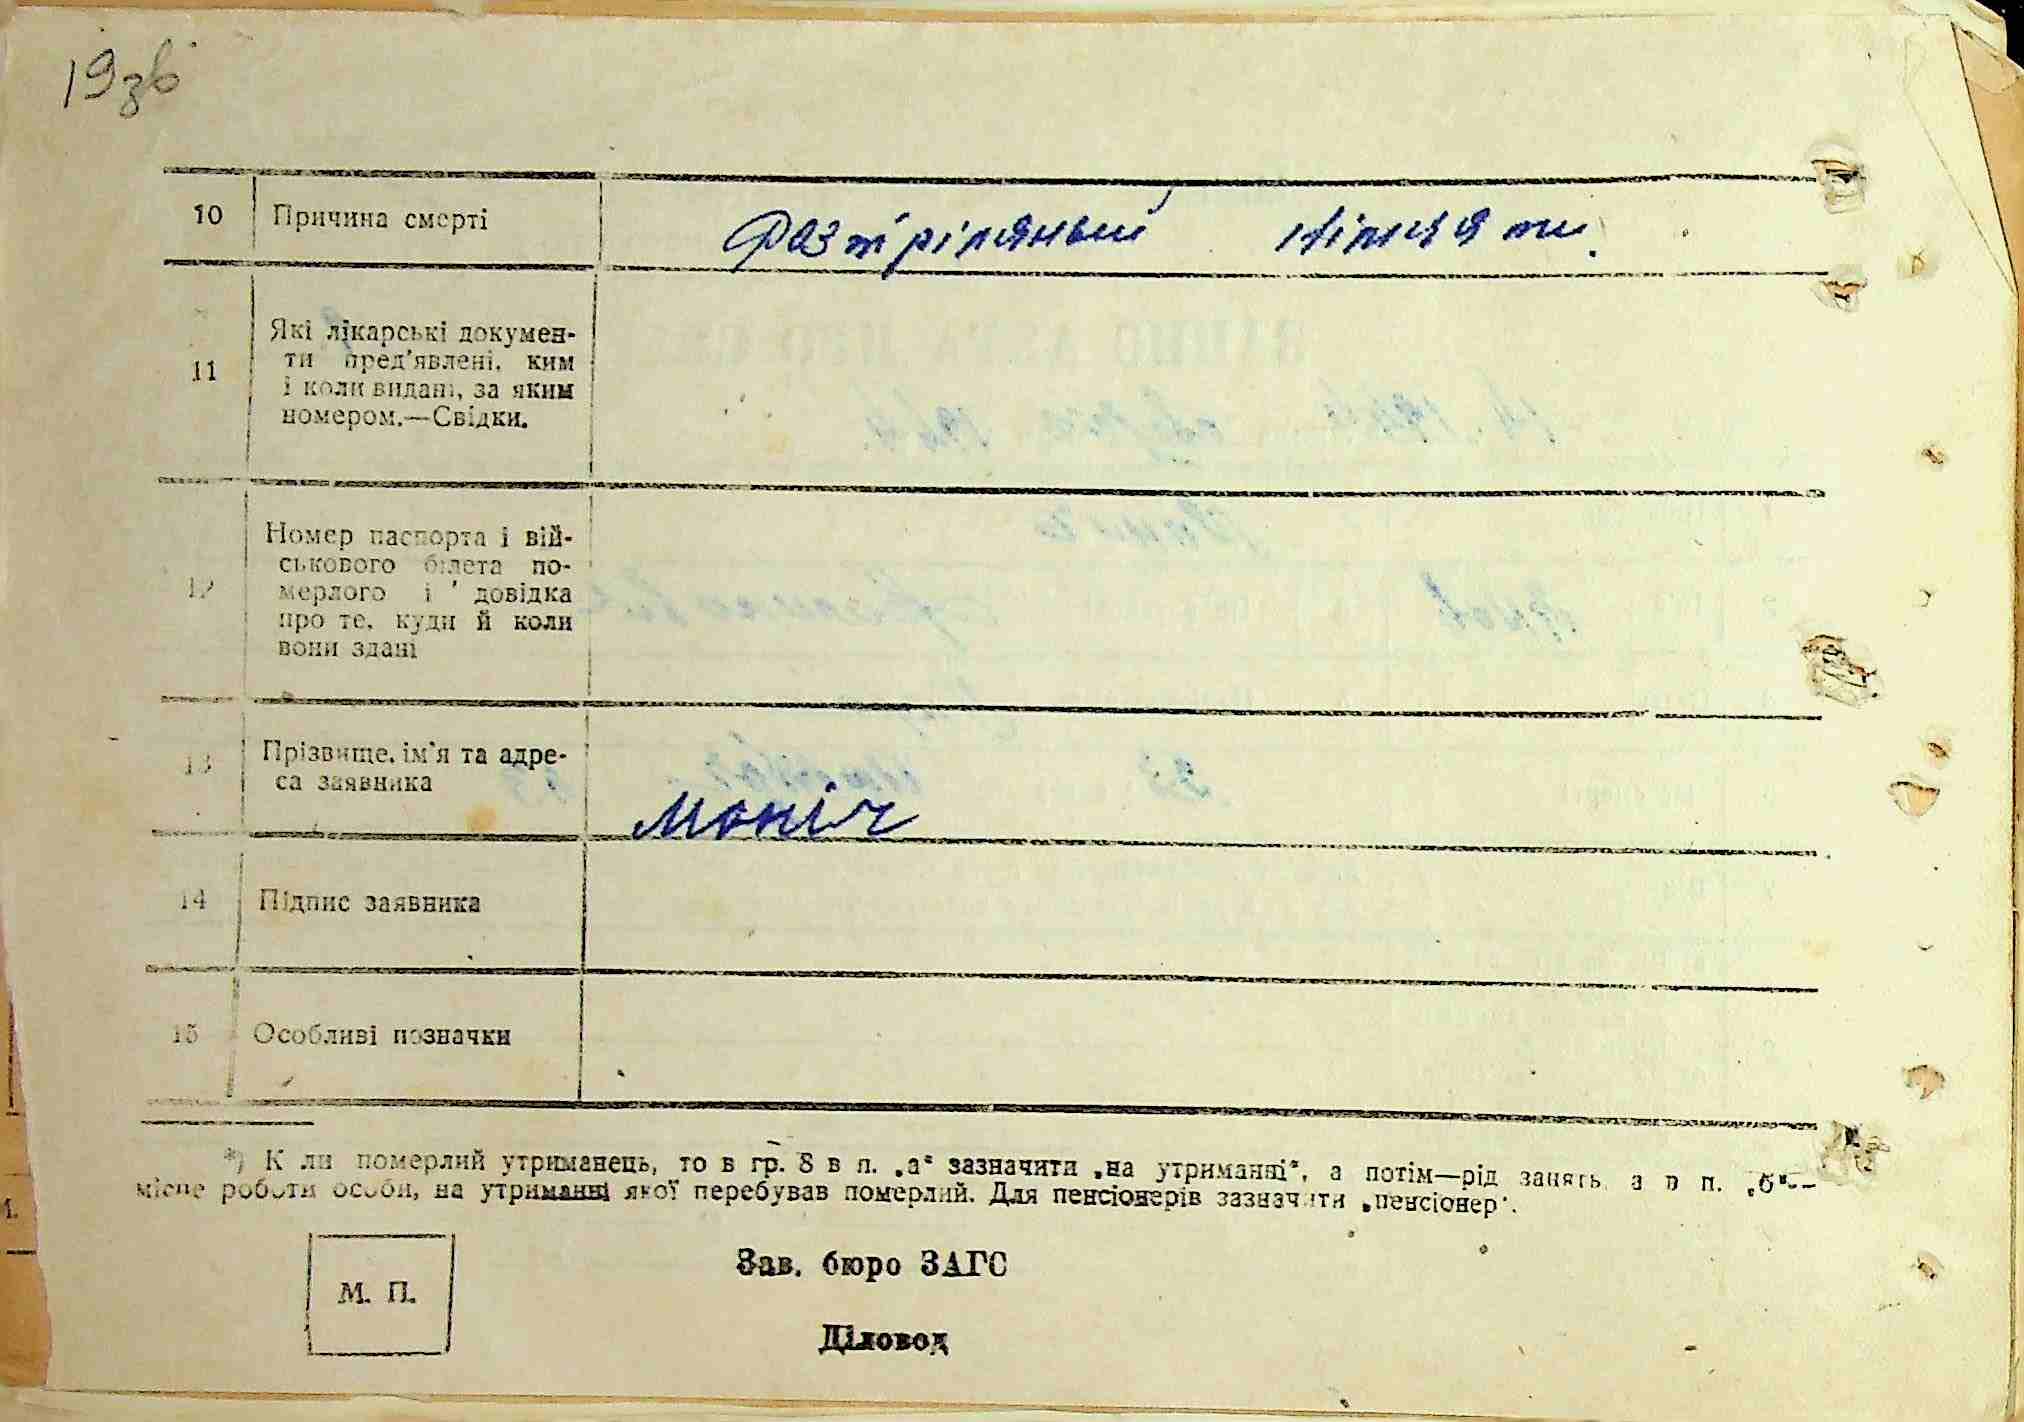 19зв
10 Причина смерті Розтріляний німцями.
11 Які лікарські докумен-
ти пред'явлені, ким
і коли видані, за яким
номером.—Свідки.
12 Номер паспорта і вій-
ськового білета по-
мерлого і довідка
про те, куди й коли
вони здані
13 Прізвище, ім'я та адре-
са заявника
Моніч
14 Підпис заявника
15 Особливі позначки
*) К ли померлий утриманець, то в гр. 8 в п. „а“ зазначити „на утриманні“, а потім—рід занять, а в п. „б“—
місце роботи особи, на утриманні якої перебував померлий. Для пенсіонерів зазначити „пенсіонер“.
М. П.
Зав. бюро ЗАГС
Діловод